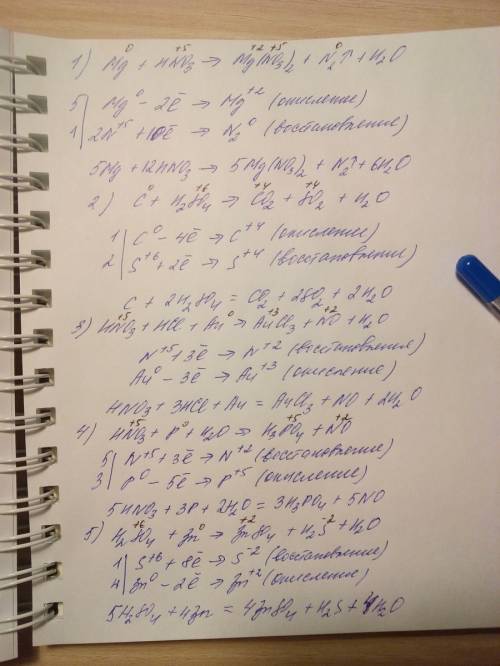 1) Mg⁰ + HN⁺⁵O₃ → Mg⁺²(N⁺⁵O₃)₂ + N₂⁰↑ + H₂O
5 | Mg⁰ – 2ē → Mg⁺² (окисление)
1 | 2N⁺⁵ + 10ē → N₂⁰ (восстановление)
5Mg + 12HNO₃ → 5Mg(NO₃)₂ + N₂↑ + 6H₂O
2) C⁰ + H₂S⁺⁶O₄ → C⁺⁴O₂ + S⁺⁴O₂ + H₂O
1 | C⁰ – 4ē → C⁺⁴ (окисление)
2 | S⁺⁶ + 2ē → S⁺⁴ (восстановление)
C + 2H₂SO₄ = CO₂ + 2SO₂ + 2H₂O
3) HN⁺⁵O₃ + HCl + Au⁰ → Au⁺³Cl₃ + N⁺²O + H₂O
N⁺⁵ + 3ē → N⁺² (восстановления)
Au⁰ – 3ē → Au⁺³ (окисление)
HNO₃ + 3HCl + Au = AuCl₃ + NO + 2H₂O
4) HN⁺⁵O₃ + P⁰ + H₂O → H₃P⁺⁵O₄ + N⁺²O
5 | N⁺⁵ + 3ē → N⁺² (восстановление)
3 | P⁰ – 5ē → P⁺⁵ (окисление)
5HNO₃ + 3P + 2H₂O = 3H₃PO₄ + 5NO
5) H₂S⁺⁶O₄ + Zn⁰ → Zn⁺²SO₄ + H₂S⁻² + H₂O
1 | S⁺⁶ + 8ē → S⁻² (восстановление)
4 | Zn⁰ – 2ē → Zn⁺² (окисление)
5H₂SO₄ + 4Zn = 4ZnSO₄ + H₂S + 4H₂O